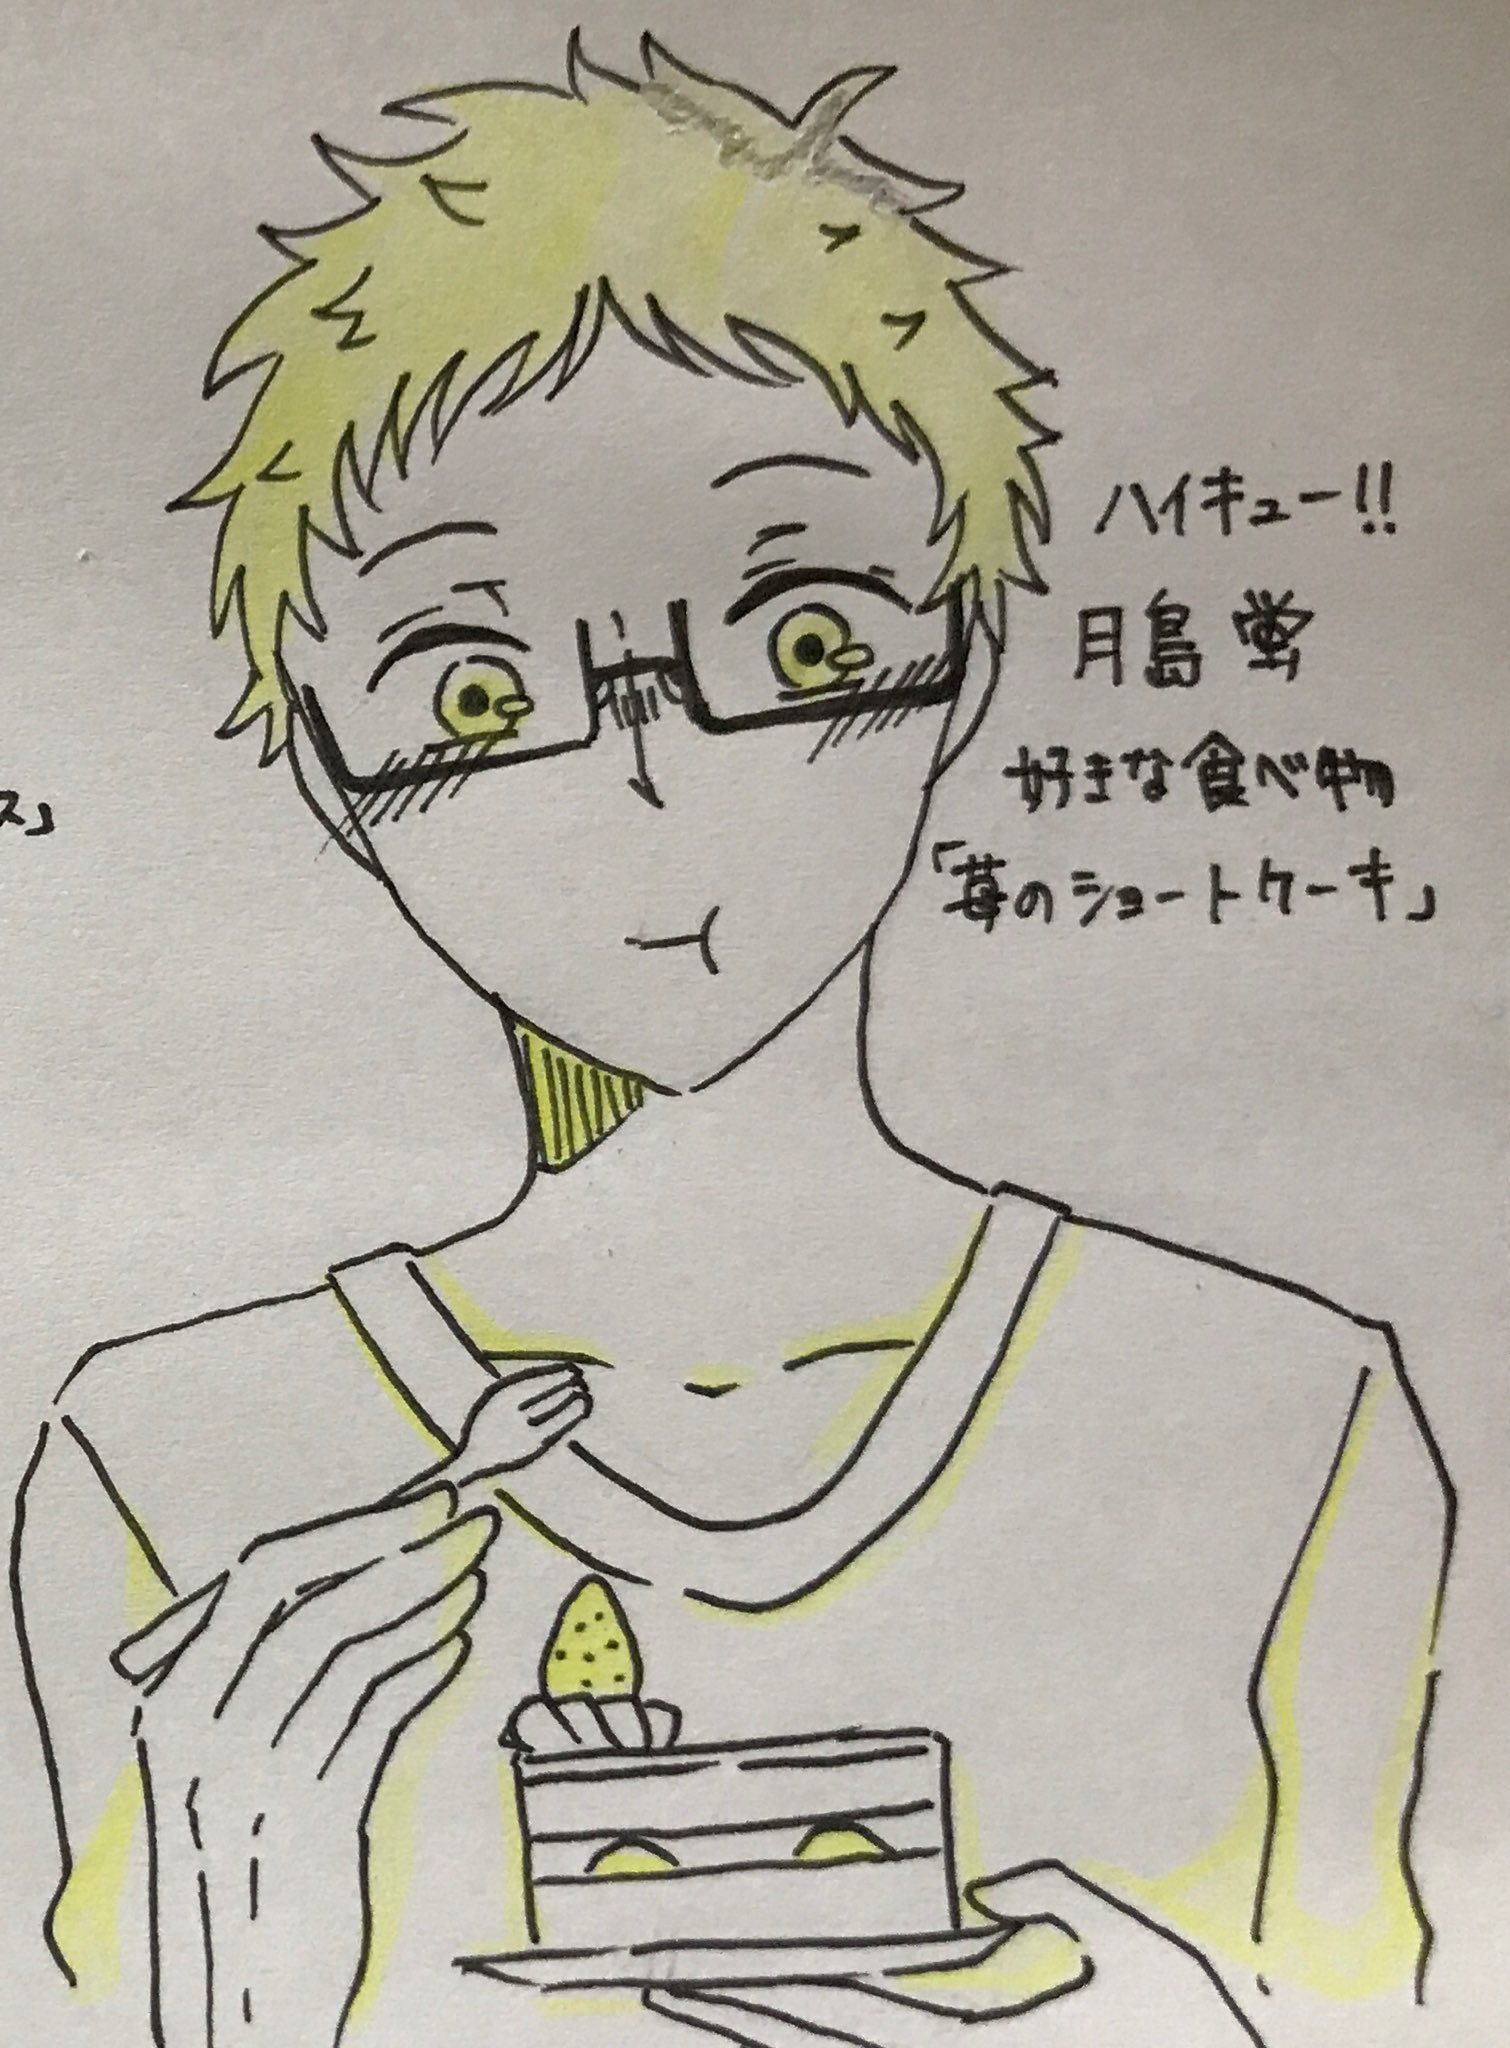 ハイキュー!!
月島 蛍
好きな食べ物
「苺のショートケーキ」
ス」